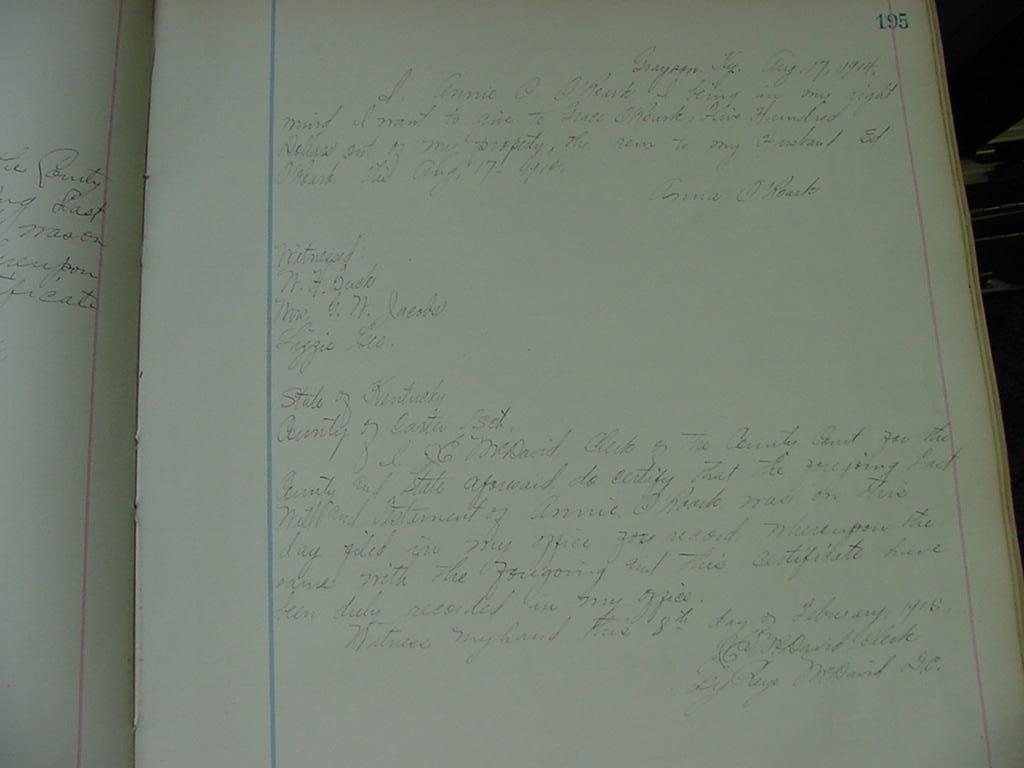 195
Grayson Ky. Aug. 17, 1914.
I, Annie O. O'Roark I being in my right
mind I want to give to Grace O'Roark, Five Hundred
Dollars out of my property, the rem to my Husband Ed
O'Roark. This Aug, 17- 1914.
Anna O'Roark
Witnessed:
W. H. Buck
Mrs. G. W. Jacobs
Lizzie Lee.
State of Kentucky
County of Carter Sct.
I, McDavid, Clerk of the County Court for the
County and State aforesaid, do certify that the foregoing Last
Will and Statement of Annie O'Roark was on this
day filed in my office for record whereupon the
same with the foregoing and this certificate have
been duly recorded in my office.
Witness my hand this 8th day of February, 1915,
McDavid Clerk
By McDavid D.C.
the County
Last
mason
hereupon
tificate